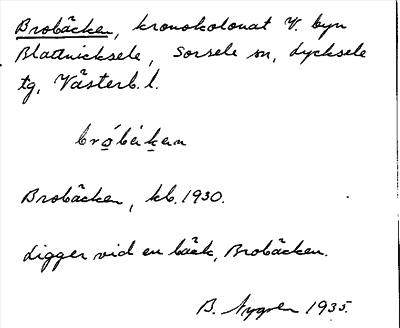 Brobäcken, kronokolonat V. byn
Blattnicksele, Sorsele sn, Lycksele
tg, Västerb. l.
bró̱bäk̬en
Brobäcken, kb. 1930.
Ligger vid en bäck, Brobäcken.
B. Nygren 1935.